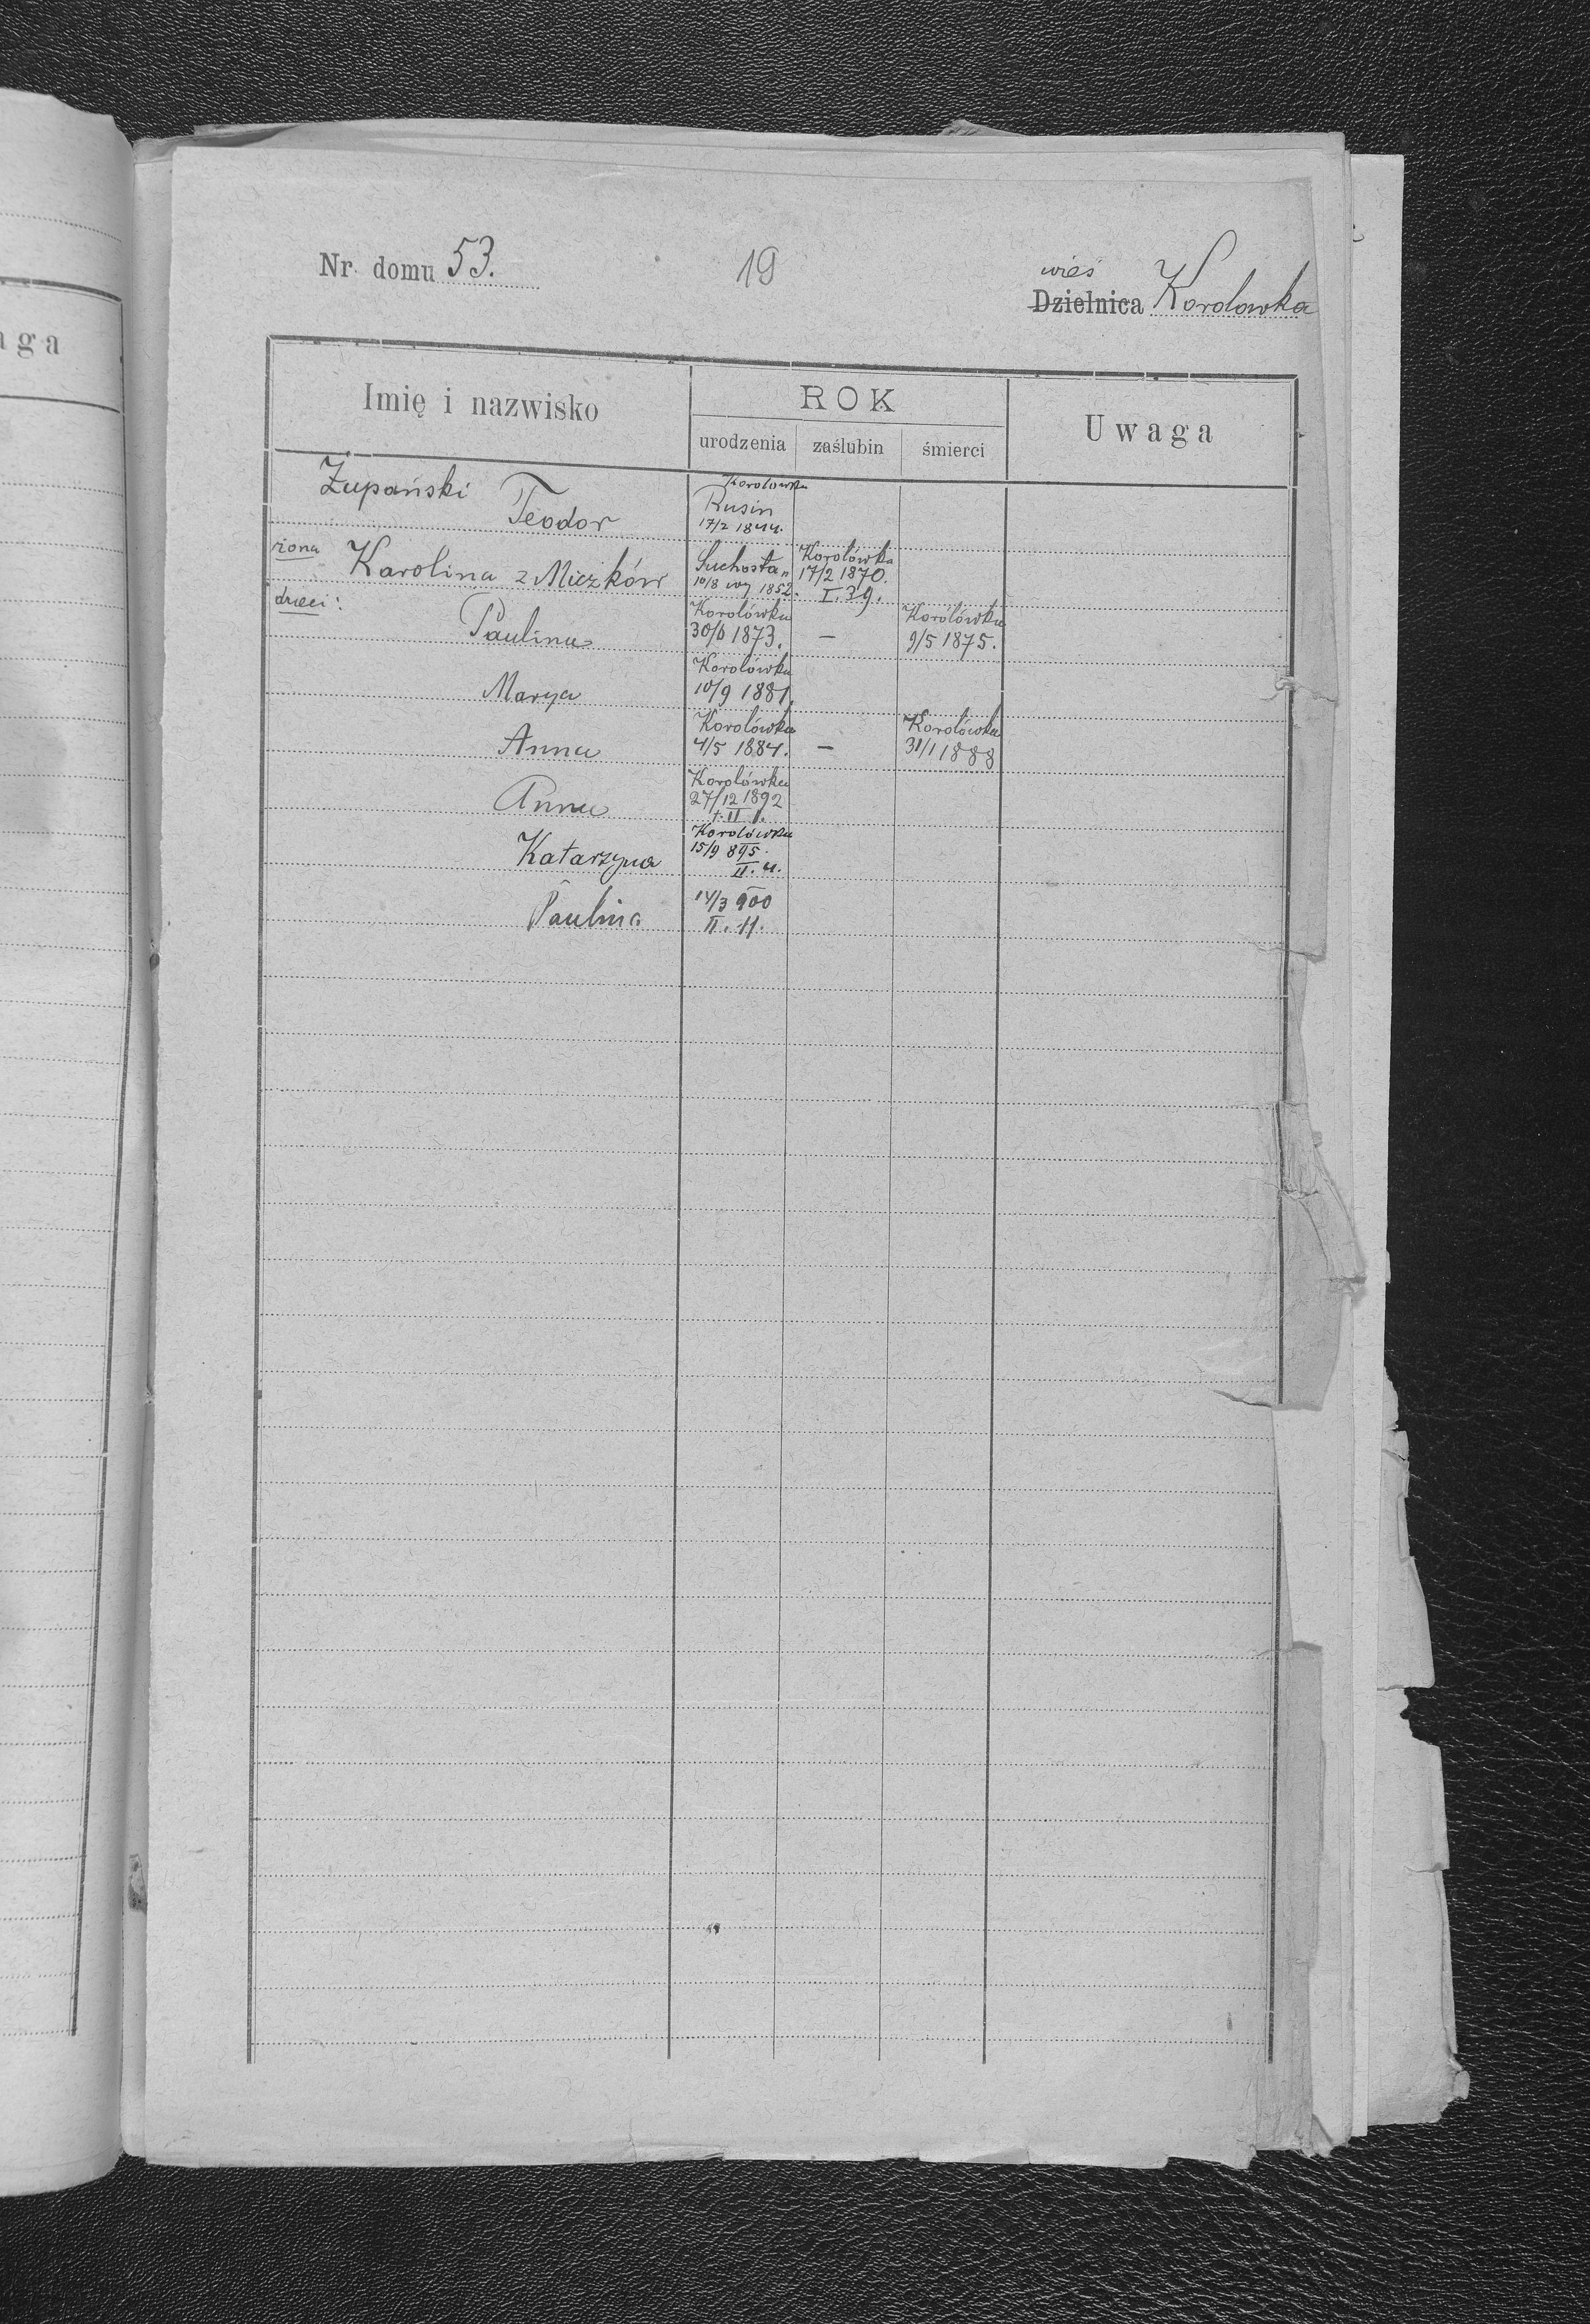 aga
Nr. domu 53.
19
wieś
Dzielnica Korolowka
Imię i nazwisko
ROK
urodzenia zaślubin śmierci
Uwaga
Żupański Teodor
Korolowka
Rusin
17/2 1844.
żona
Karolina z Miczków
Suchosta„
10/8 1852.
Korolówka
17/2 1870.
I. 39.
dzieci:
Paulina
Korolówka
30/6 1873.
—
Korolówka
9/5 1875.
Marya
Korolówka
10/9 1881.
Anna
Korolówka
4/5 1884.
—
Korolówka
31/1 1888
Anna
Korolówka
27/12 1892
t. II 1.
Katarzyna
Korolówka
15/9 895.
II. 4.
Paulina
14/3 900
II. 11.